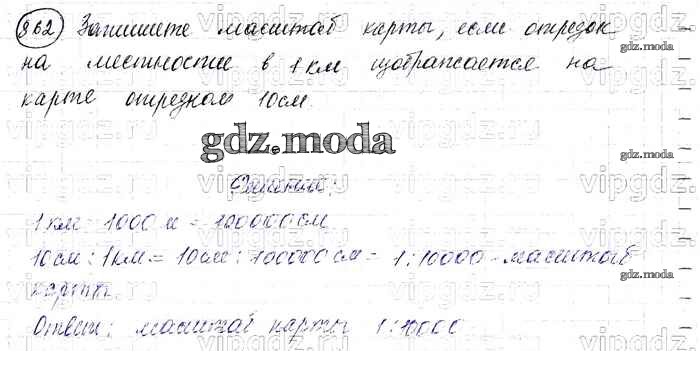 862 Запишите масштаб карты, если отрезок
на местности в 1 км изображается на
карте отрезком 10 см.
gdz.moda
Решение:
1 км = 1000 м = 100000 см
10 см : 1 км = 10 см : 100000 см = 1 : 10000 - масштаб
карты
Ответ: масштаб карты 1 : 10000
gdz.moda
gdz.moda
gdz.moda
gdz.moda
vipgdz.ru